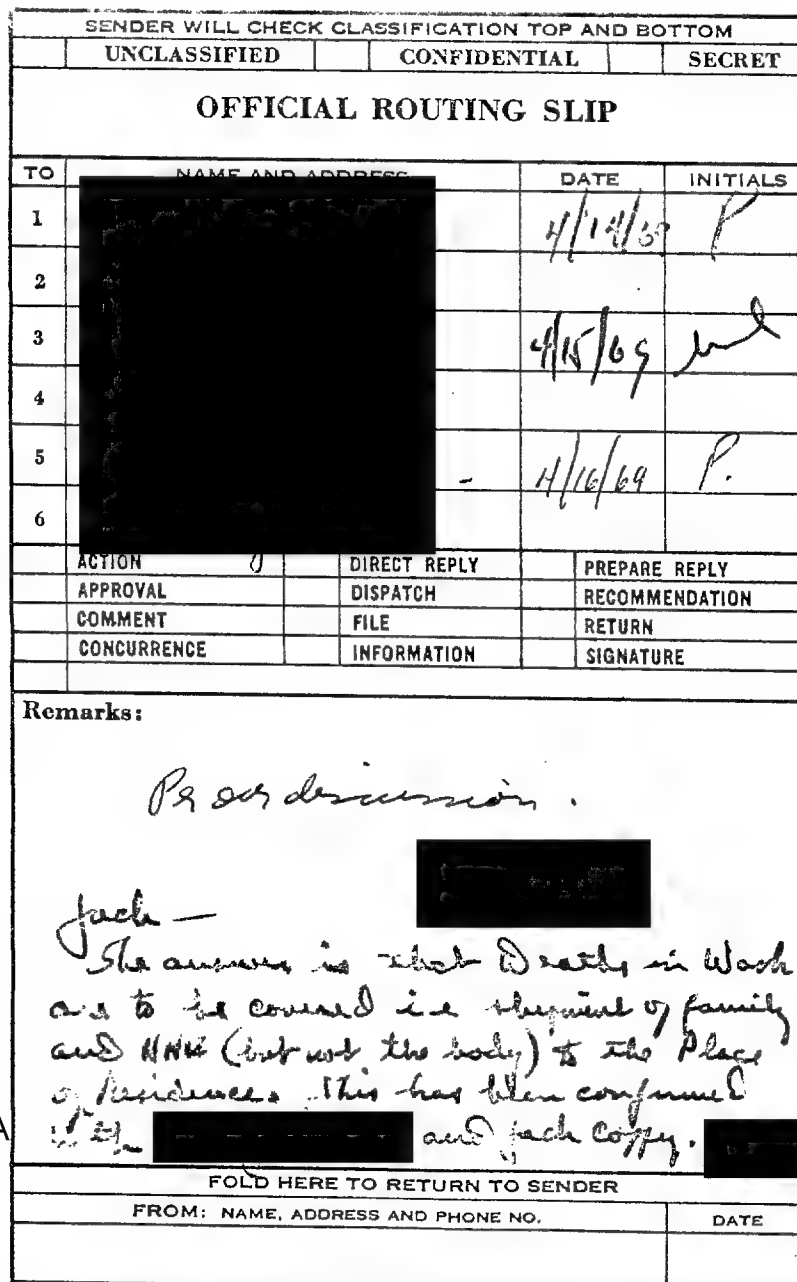 SENDER WILL CHECK CLASSIFICATION TOP AND BOTTOM
UNCLASSIFIED CONFIDENTIAL SECRET
OFFICIAL ROUTING SLIP
TO NAME AND ADDRESS DATE INITIALS
1 4/14/69 P
2
3 4/15/69
4
5 4/16/69 P.
6
ACTION DIRECT REPLY PREPARE REPLY
APPROVAL DISPATCH RECOMMENDATION
COMMENT FILE RETURN
CONCURRENCE INFORMATION SIGNATURE
Remarks:
Per our discussion.
Jack —
The answer is that Deaths in Wash
are to be covered i.e shipment of family
and HHE (but not the body) to the Place
of Residence. This has been confirmed
with and Jack Coffey.
FOLD HERE TO RETURN TO SENDER
FROM: NAME, ADDRESS AND PHONE NO. DATE